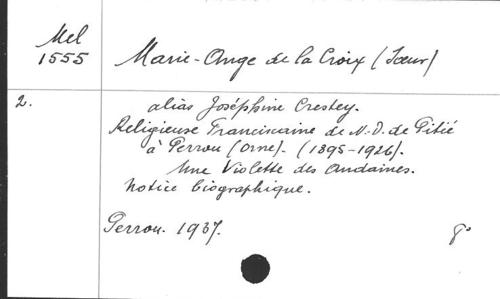 Mel
1555
Marie-Ange de la Croix (Sœur)
2.
alias Joséphine Crestey.
Religieuse Franciscaine de N.-D. de Pitié
à Perrou (Orne). (1895-1926).
Une Violette des Andaines.
Notice biographique.
Perrou. 1937.
8°